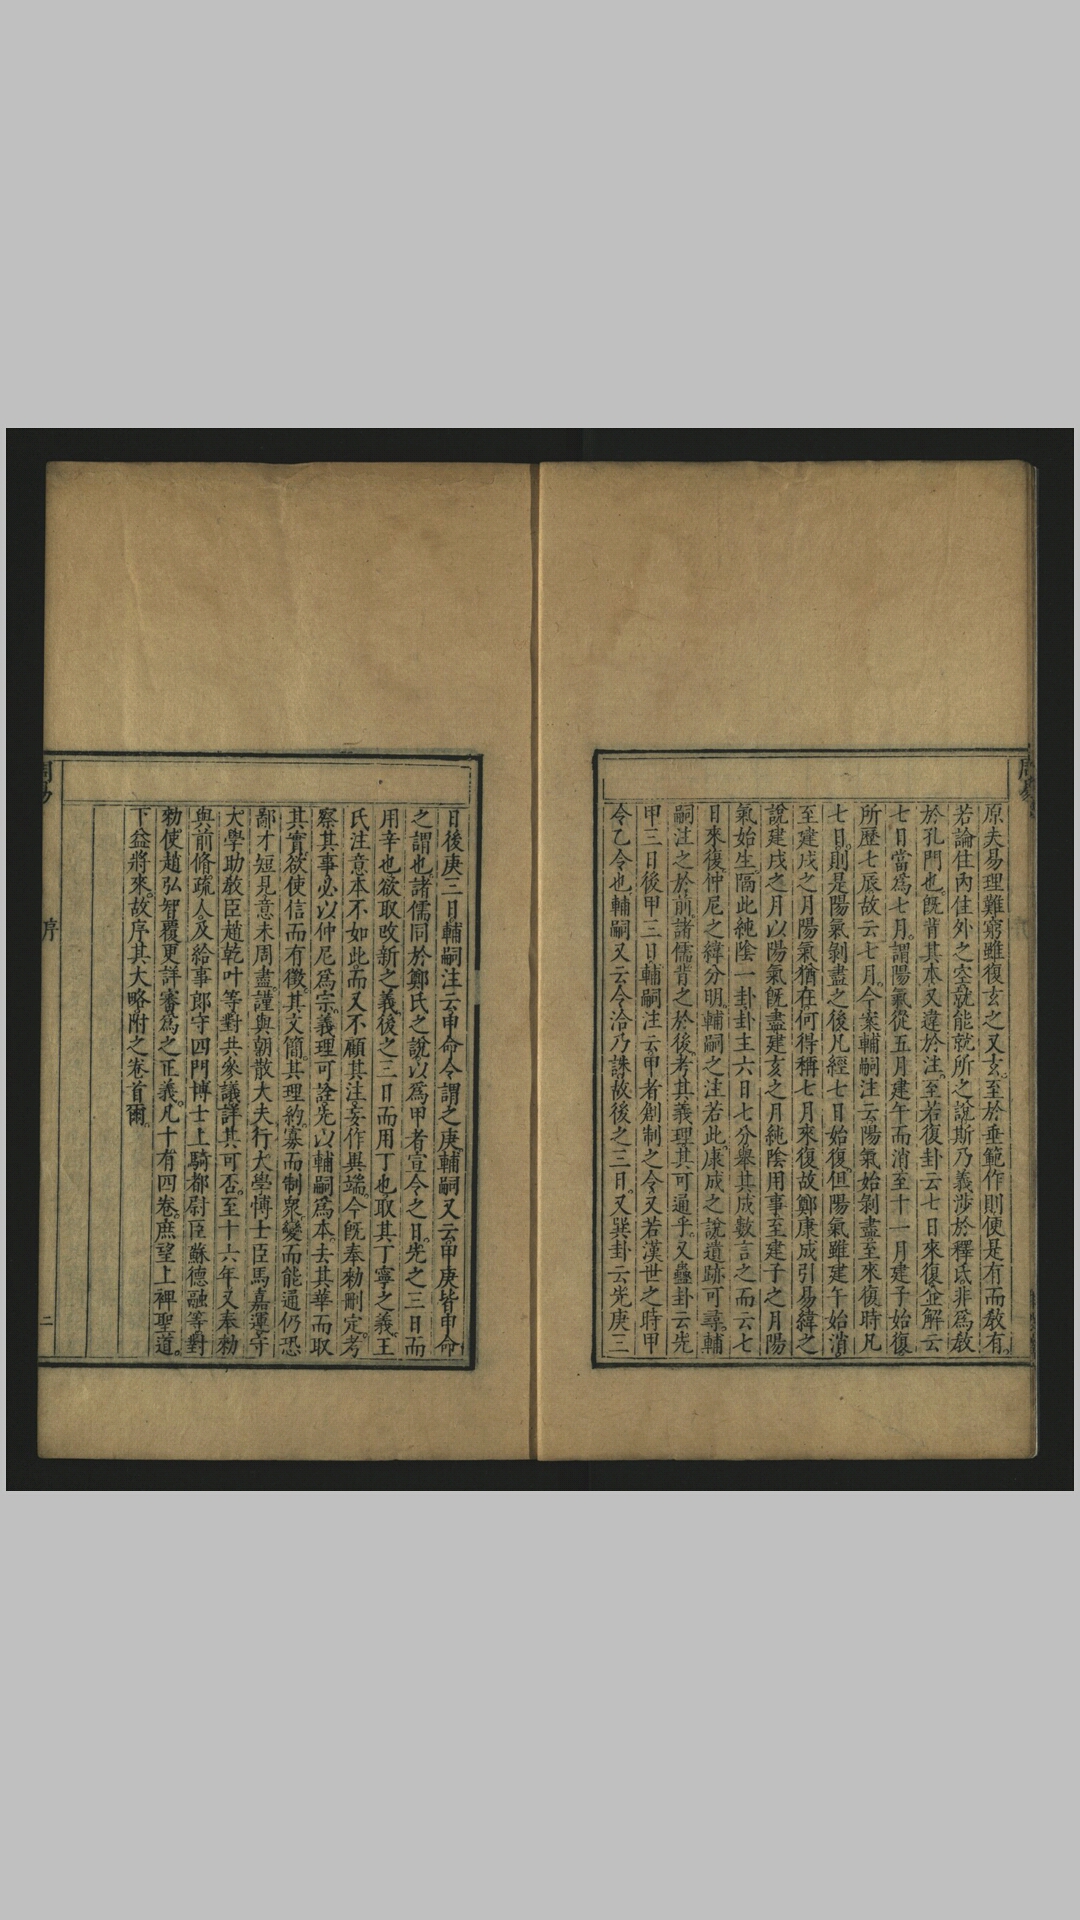 周易
原夫易理難窮雖復玄之又玄至於垂範作則便是有而敎有
若論住內住外之空就能就所之說斯乃義涉於釋氏非爲敎
於孔門也旣背其本又違於注至若復卦云七日來復並解云
七日當爲七月謂陽氣從五月建午而消至十一月建子始復
所歷七辰故云七月今案輔嗣注云陽氣始剝盡至來復時凡
七日則是陽氣剝盡之後凡經七日始復但陽氣雖建午始消
至建戌之月陽氣猶在何得稱七月來復故鄭康成引易緯之
說建戌之月以陽氣旣盡建亥之月純陰用事至建子之月陽
氣始生隔此純陰一卦卦主六日七分舉其成數言之而云七
日來復仲尼之緯分明輔嗣之注若此康成之說遺跡可尋輔
嗣注之於前諸儒背之於後考其義理其可通乎又蠱卦云先
甲三日後甲三日輔嗣注云甲者創制之令又若漢世之時甲
令乙令也輔嗣又云令洽乃誅故後之三日又巽卦云先庚三
日後庚三日輔嗣注云申命令謂之庚輔嗣又云甲庚皆申命
之謂也諸儒同於鄭氏之說以爲甲者宣令之日先之三日而
用辛也欲取改新之義後之三日而用丁也取其丁寧之義王
氏注意本不如此而又不顧其注妄作異端今旣奉勑刪定考
察其事必以仲尼爲宗義理可詮先以輔嗣爲本去其華而取
其實欲使信而有徵其文簡其理約寡而制衆變而能通仍恐
鄙才短見意未周盡謹與朝散大夫行大學博士臣馬嘉運守
大學助敎臣趙乾叶等對共參議詳其可否至十六年又奉勑
與前脩疏人及給事郎守四門博士上騎都尉臣蘇德融等對
勑使趙弘智覆更詳審爲之正義凡十有四卷庶望上裨聖道
下益將來故序其大略附之卷首爾
周易
序
二